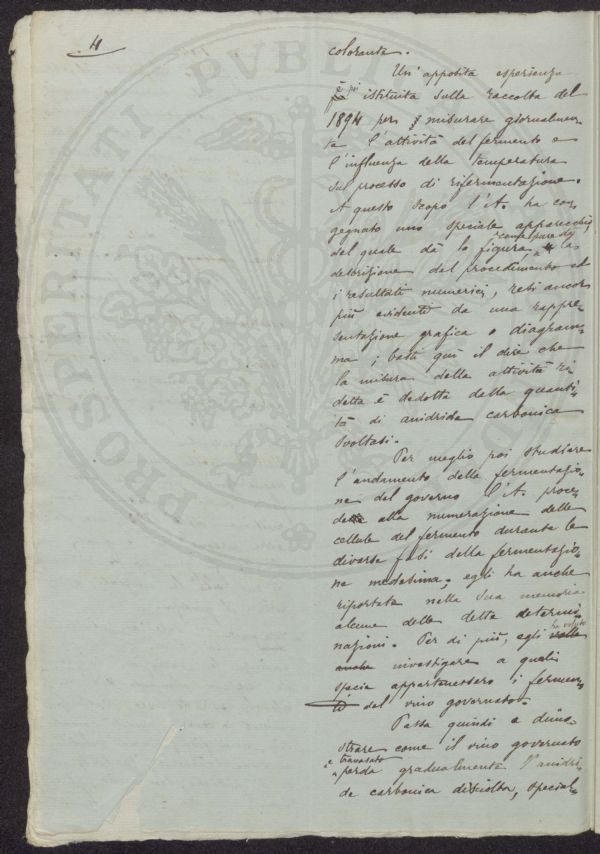 4
colorante.
Un' apposita esperienza
è poi istituita sulla raccolta del
1894 per misurare giornalmen-
te l'attività del fermento e
l'influenza della temperatura
sul processo di rifermentazione.
A questo scopo l'A. ha con-
gegnato uno speciale apparecchio
del quale dà la figura, la
descrizione del procedimento ed
i resultati numerici, resi ancor
più evidenti da una rappre-
sentazione grafica o diagram-
ma; basti qui il dire che
la misura della attività sud-
detta è dedotta dalla quanti-
tà di anidride carbonica
svoltasi.
Per meglio poi studiare
l'andamento della fermentazio-
ne del governo l'A. proce-
dette alla numerazione delle
cellule del fermento durante le
diverse fasi della fermentazio-
ne medesima; egli ha anche
riportate nella sua memoria
alcune delle dette determi-
nazioni. Per di più, egli ha voluto
anche investigare a quali
specie appartenessero i fermen-
ti del vino governato.
Passa quindi a dimo-
strare come il vino governato
e travasato
perda gradualmente l'anidri-
de carbonica disciolta, special-
PROSPERITATI PVBLI